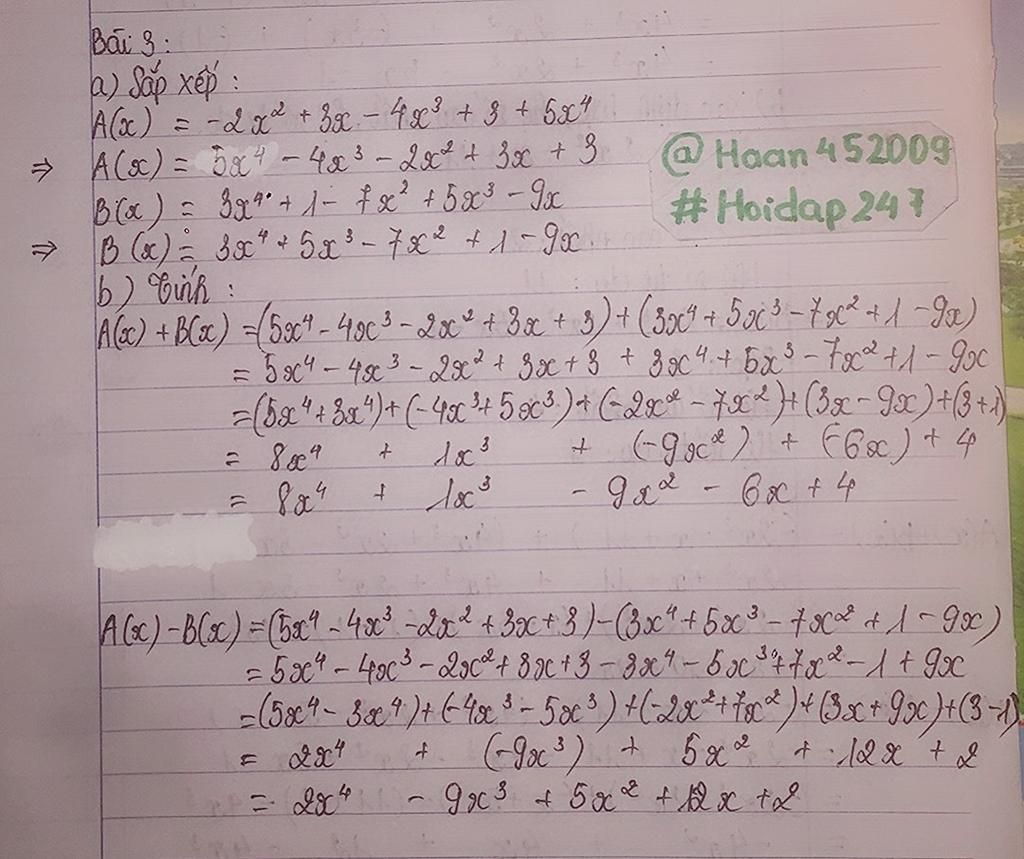 Bài 3 :
a) Sắp xếp :
A(x) = -2x² + 3x - 4x³ + 3 + 5x⁴
⇒ A(x) = 5x⁴ - 4x³ - 2x² + 3x + 3
@ Haan452009
B(x) = 3x⁴ + 1 - 7x² + 5x³ - 9x
# Hoidap247
⇒ B(x) = 3x⁴ + 5x³ - 7x² + 1 - 9x
b) Tính :
A(x) + B(x) = (5x⁴ - 4x³ - 2x² + 3x + 3) + (3x⁴ + 5x³ - 7x² + 1 - 9x)
= 5x⁴ - 4x³ - 2x² + 3x + 3 + 3x⁴ + 5x³ - 7x² + 1 - 9x
= (5x⁴ + 3x⁴) + (-4x³ + 5x³) + (-2x² - 7x²) + (3x - 9x) + (3 + 1)
= 8x⁴ + 1x³ + (-9x²) + (-6x) + 4
= 8x⁴ + 1x³ - 9x² - 6x + 4
A(x) - B(x) = (5x⁴ - 4x³ - 2x² + 3x + 3) - (3x⁴ + 5x³ - 7x² + 1 - 9x)
= 5x⁴ - 4x³ - 2x² + 3x + 3 - 3x⁴ - 5x³ + 7x² - 1 + 9x
= (5x⁴ - 3x⁴) + (-4x³ - 5x³) + (-2x² + 7x²) + (3x + 9x) + (3 - 1)
= 2x⁴ + (-9x³) + 5x² + 12x + 2
= 2x⁴ - 9x³ + 5x² + 12x + 2